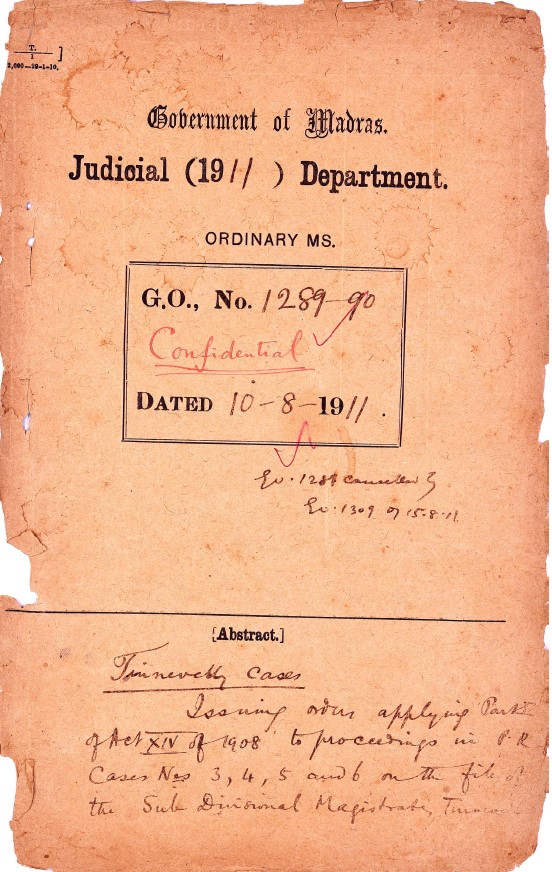 T.
1
2,000—19-1-10.
Government of Madras.
Judicial (1911) Department.
ORDINARY MS.
G.O., No. 1289-90
Confidential
DATED 10-8-1911.
Go. 1289 cancelled by
Go. 1309 of 15-8-11
[Abstract.]
Tinnevelly cases
Issuing orders applying Part
of Act XIV of 1908 to proceedings in P.R
Cases Nos 3, 4, 5 and 6 on the file of
the Sub Divisional Magistrate,